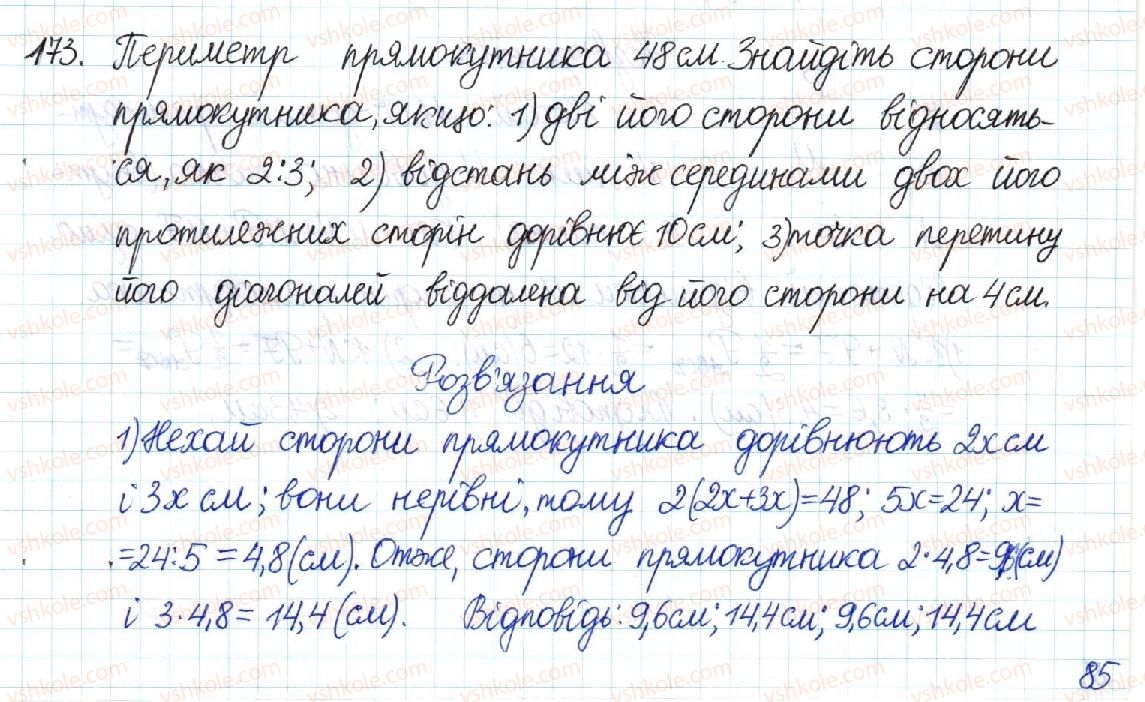 173. Периметр прямокутника 48 см. Знайдіть сторони
прямокутника, якщо: 1) дві його сторони відносять-
ся, як 2:3; 2) відстань між серединами двох його
протилежних сторін дорівнює 10 см; 3) точка перетину
його діагоналей віддалена від його сторони на 4 см.
Розв'язання
1) Нехай сторони прямокутника дорівнюють 2x см
і 3x см; вони нерівні, тому 2(2x+3x)=48; 5x=24; x=
=24:5=4,8(см). Отже, сторони прямокутника 2·4,8=9,6(см)
і 3·4,8=14,4(см). Відповідь: 9,6см; 14,4см; 9,6см; 14,4см
85